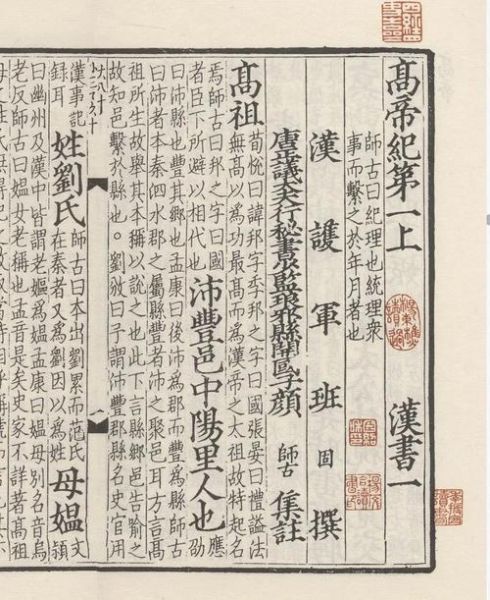 高帝紀第一上　漢書一
師古曰紀理也統理衆
事而繫之於年月者也
漢護軍班固撰
唐正議大夫行秘書少監琅邪縣開國子顏師古集註
高祖
荀悅曰諱邦字季邦之字曰國張晏曰禮謚法
無高以為功最高而為漢帝之太祖故特起名
焉師古曰邦之字曰國
者臣下所避以相代也
沛豐邑中陽里人也
應
劭
曰沛縣也豐其鄉也孟康曰後沛為郡而豐為縣師古
曰沛者本秦泗水郡之屬縣豐者沛之聚邑耳方言高
祖所生故舉其本稱以說之也此下言縣鄉邑告喻之
故知邑繫於縣也。劉攽曰予謂沛豐郡縣名史官用
漢事記
錄耳
姓劉氏
師古曰本出劉累而范氏
在秦者又為劉因以為姓
母媼
文
頴
曰幽州及漢中皆謂老嫗為媼孟康曰媼母別名音烏
老反師古曰媼女老稱也孟音是矣史家不詳著高祖